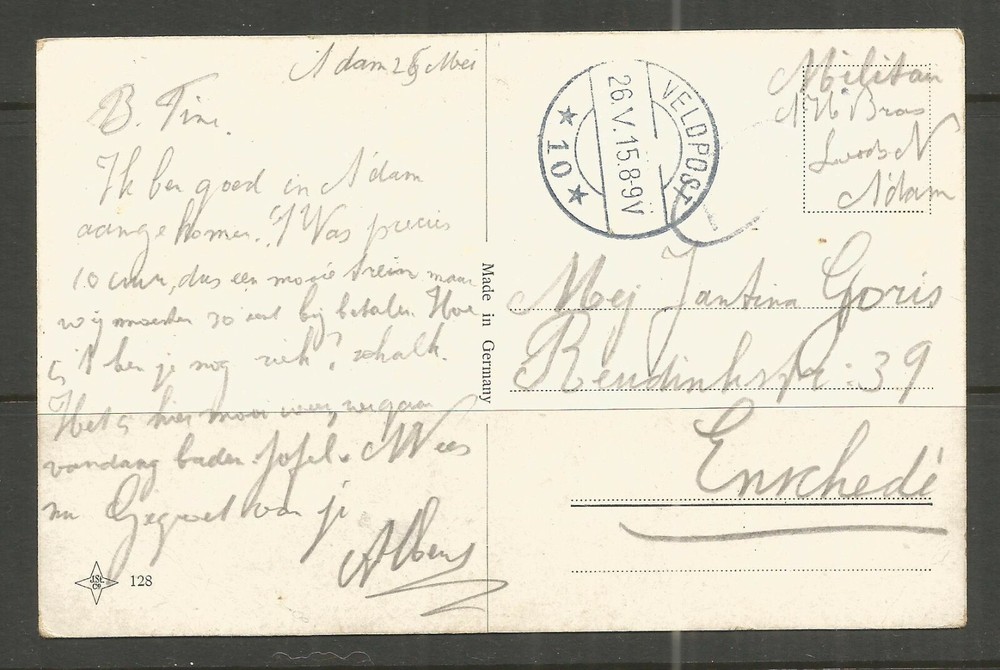 A'dam 25 Mei
B. Tine.
Ik ben goed in A'dam
aangekomen. 't Was precies
10 uur, dus een mooie trein maar
wij moesten 30 cent bij betalen. Hoe
is 't ben je nog ziek?
Het is hier mooi weer, we gaan
vandaag baden. Jofel. Wees
nu Gegroet van je
Albert
J.St. Co.
128
Made in Germany
VELDPOST
26.V.15.8-9V
★ 10 ★
Militair
A'dam
Mej Jantina Goris
39
Enschedé